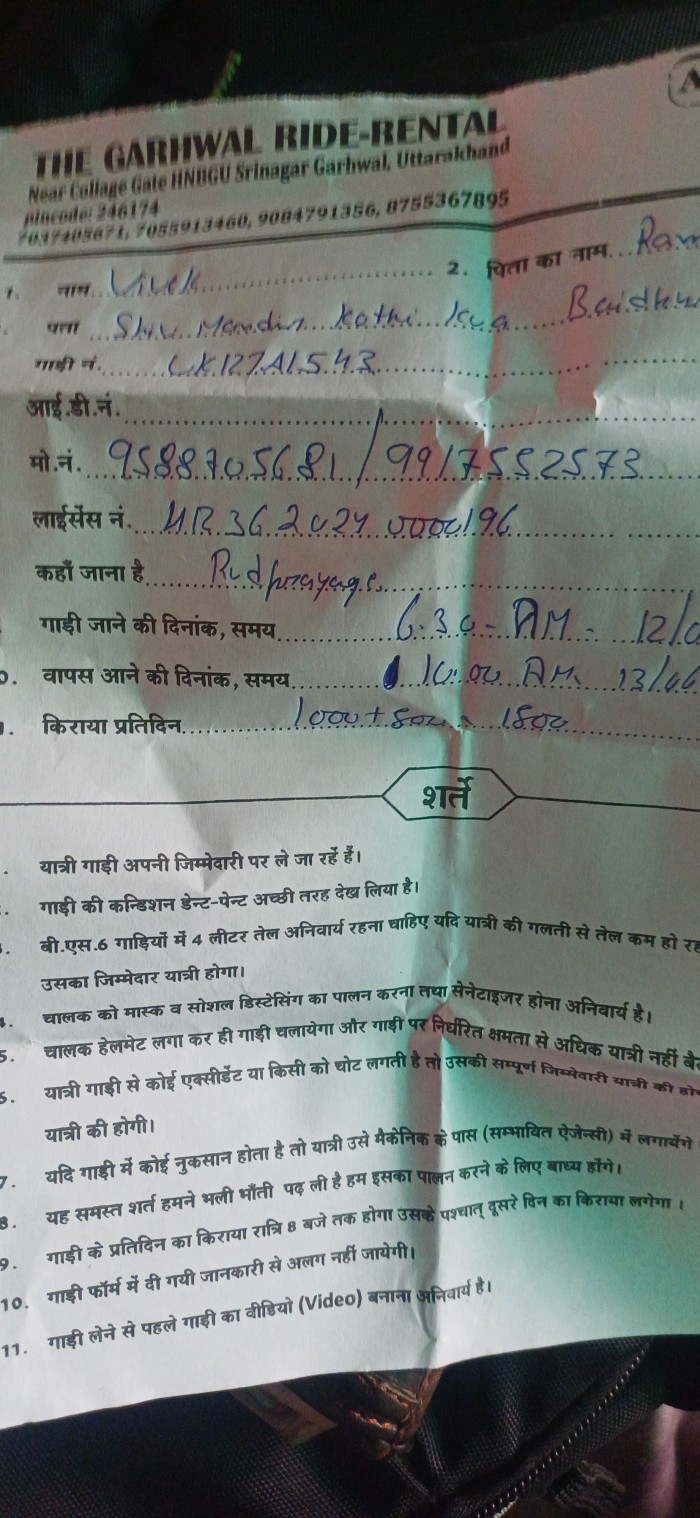 A
THE GARHWAL RIDE-RENTAL
Near Collage Gate HNBGU Srinagar Garhwal, Uttarakhand
pincode: 246174
7037405671, 7055913460, 9084791356, 8755367895
1. नाम Vivek 2. पिता का नाम
पता Shiv Mandir
गाड़ी नं.
आई.डी.नं.
मो.नं. 9588705681/9917552573
लाईसेंस नं.
कहाँ जाना है
गाड़ी जाने की दिनांक, समय 6.30-AM- 12/0
वापस आने की दिनांक, समय 10.00 AM 13/06
किराया प्रतिदिन 1000+800 1800
शर्ते
यात्री गाड़ी अपनी जिम्मेदारी पर ले जा रहें हैं।
गाड़ी की कन्डिशन डेन्ट-पेन्ट अच्छी तरह देख लिया है।
बी.एस.6 गाड़ियों में 4 लीटर तेल अनिवार्य रहना चाहिए यदि यात्री की गलती से तेल कम हो
उसका जिम्मेदार यात्री होगा।
चालक को मास्क व सोशल डिस्टेसिंग का पालन करना तथा सेनेटाइजर होना अनिवार्य है।
5. चालक हेलमेट लगा कर ही गाड़ी चलायेगा और गाड़ी पर निर्धरित क्षमता से अधिक यात्री नहीं
यात्री गाड़ी से कोई एक्सीडेंट या किसी को चोट लगती है तो उसकी सम्पूर्ण जिम्मेवारी यात्री की
यात्री की होगी।
7. यदि गाड़ी में कोई नुकसान होता है तो यात्री उसे मैकेनिक के पास (सम्भावित ऐजेन्सी) में लगायेंगे
8. यह समस्त शर्त हमने भली भाँती पढ़ ली है हम इसका पालन करने के लिए बाध्य होंगे।
9. गाड़ी के प्रतिदिन का किराया रात्रि 8 बजे तक होगा उसके पश्चात् दूसरे दिन का किराया लगेगा ।
10. गाड़ी फॉर्म में दी गयी जानकारी से अलग नहीं जायेगी।
11. गाड़ी लेने से पहले गाड़ी का वीडियो (Video) बनाना अनिवार्य है।